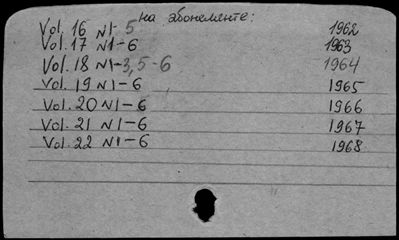 на абонементе:
Vol. 16 N1-5 1962
Vol. 17 N1-6 1963
Vol. 18 N1-3, 5-6 1964
Vol. 19 N1-6 1965
Vol. 20 N1-6 1966
Vol. 21 N1-6 1967
Vol. 22 N1-6 1968